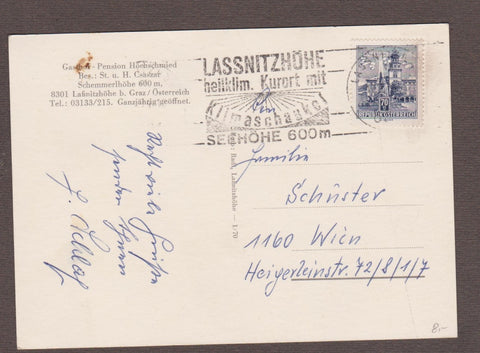 Gasthof - Pension Hochschmied
Bes.: St. u. H.
Schemmerlhöhe 600 m.
8301 Laßnitzhöhe b. Graz / Österreich
Tel.: 03133/215. Ganzjährig geöffnet.
LASSNITZHÖHE
heilklim. Kurort mit
der
Klimaschaukel
SEEHÖHE 600m
70
REPUBLIK ÖSTERREICH
Laßnitzhöhe - 1/70
Familie
Schuster
1160 Wien
Heigerleinstr. 72/8/1/7
Grüße
senden Ihnen
8.-